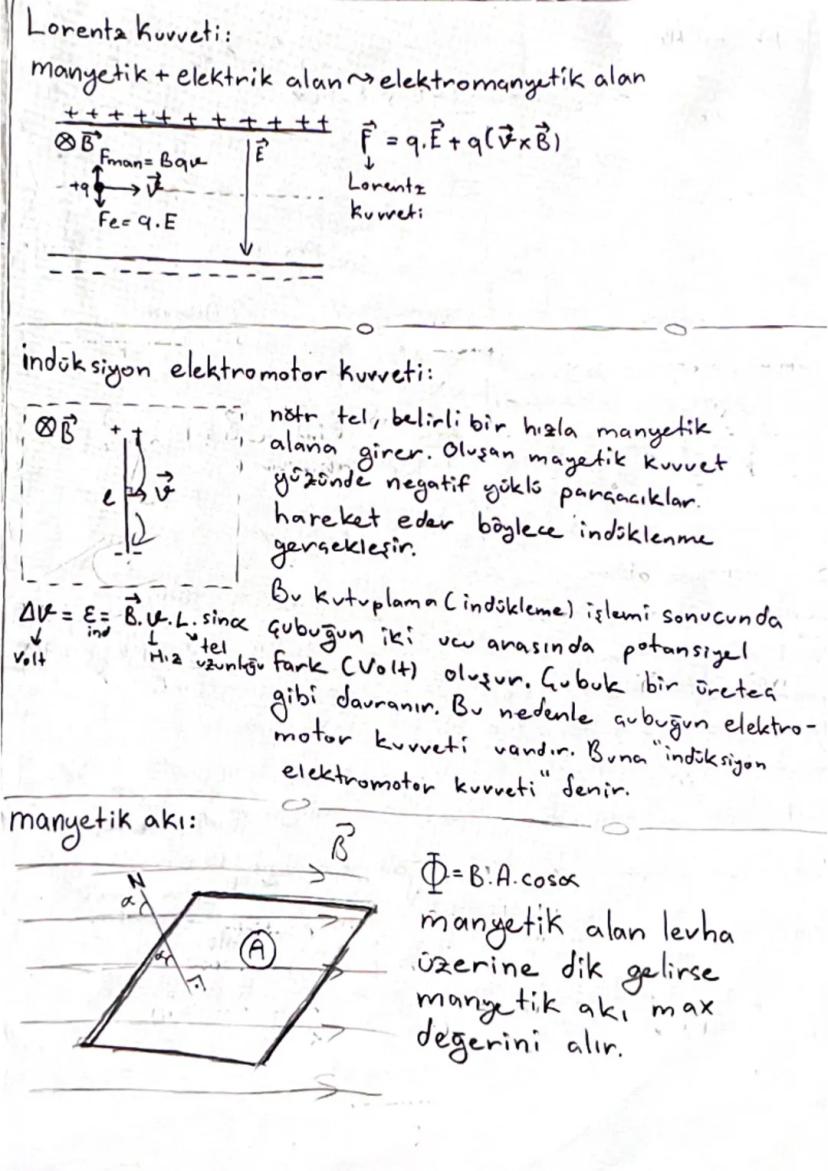 Lorentz Kuvveti:
manyetik + elektrik alan ~> elektromanyetik alan
+ + + + + + + + + + +
⊗ B⃗
Fman = Bqv
+q
v⃗
Fe = q.E
E⃗
F⃗ = q.E⃗ + q(v⃗ x B⃗)
↓
Lorentz
kuvveti
indüksiyon elektromotor kuvveti:
⊗B⃗
+ +
l
v⃗
- -
nötr tel, belirli bir hızla manyetik
alana girer. Oluşan mayetik kuvvet
yüzünde negatif yüklü parçacıklar
hareket eder böylece indüklenme
gerçekleşir.
ΔV = ε ind = B⃗. v. L. sinα
↓ volt
↓ Hız
tel uzunluğu
Bu kutuplama (indükleme) işlemi sonucunda
çubuğun iki ucu arasında potansiyel
fark (Volt) oluşur. Çubuk bir üreteç
gibi davranır. Bu nedenle çubuğun elektro-
motor kuvveti vardır. Buna "indüksiyon
elektromotor kuvveti" denir.
manyetik akı:
B⃗
N
α
α
A
Φ = B.A.cosα
manyetik alan levha
üzerine dik gelirse
manyetik akı max
değerini alır.